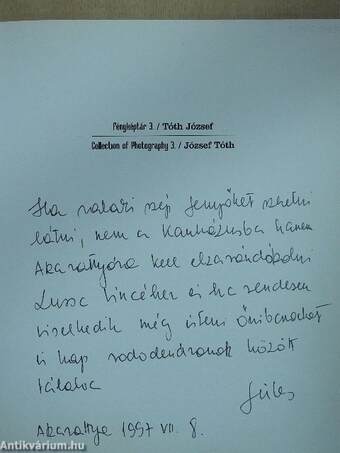 Fényképtár 3. / Tóth József
Collection of Photography 3. / József Tóth
Ha valaki szép fenyőket szeretne
látni, nem a Kaukázusba hanem
Akarattyára kell elzarándokolni
Lussa Vincéhez és ha rendesen
viselkedik még isteni őszibarackot
is kap rododendronok között
tálalva
Akarattya 1997 VII. 8.
Antikvárium.hu